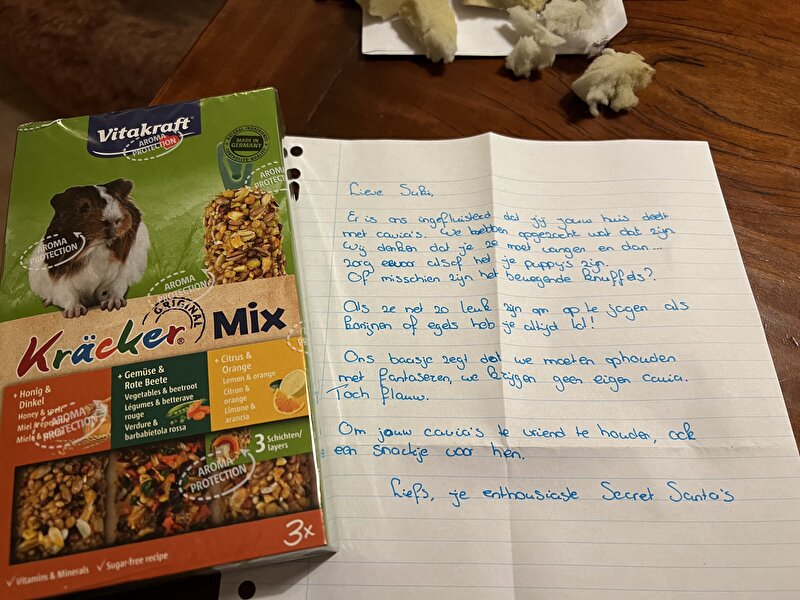 Vitakraft
AROMA PROTECTION
MADE IN GERMANY
AROMA PROTECTION
AROMA PROTECTION
AROMA PROTECTION
ORIGINAL
Kräcker® Mix
+ Honig & Dinkel
Honey & spelt
AROMA PROTECTION
+ Gemüse & Rote Beete
Vegetables & beetroot
Légumes & betterave rouge
Verdure & barbabietola rossa
+ Citrus & Orange
Lemon & orange
Citron & orange
Limone & arancia
3 Schichten/layers
AROMA PROTECTION
3x
Vitamins & Minerals
Sugar-free recipe
Lieve Suki,
Er is ons ingefluisterd dat jij jouw huis deelt
met cavia's. We hebben opgezocht wat dat zijn.
Wij denken dat je ze moet vangen en dan...
zorg ervoor alsof het je puppy's zijn.
Of misschien zijn het bewegende knuffels?
Als ze net zo leuk zijn om op te jagen als
konijnen of egels heb je altijd lol!
Ons baasje zegt dat we moeten ophouden
met fantaseren, we krijgen geen eigen cavia.
Toch flauw.
Om jouw cavia's te vriend te houden, ook
een snackje voor hen.
Liefs, je enthousiaste Secret Santa's